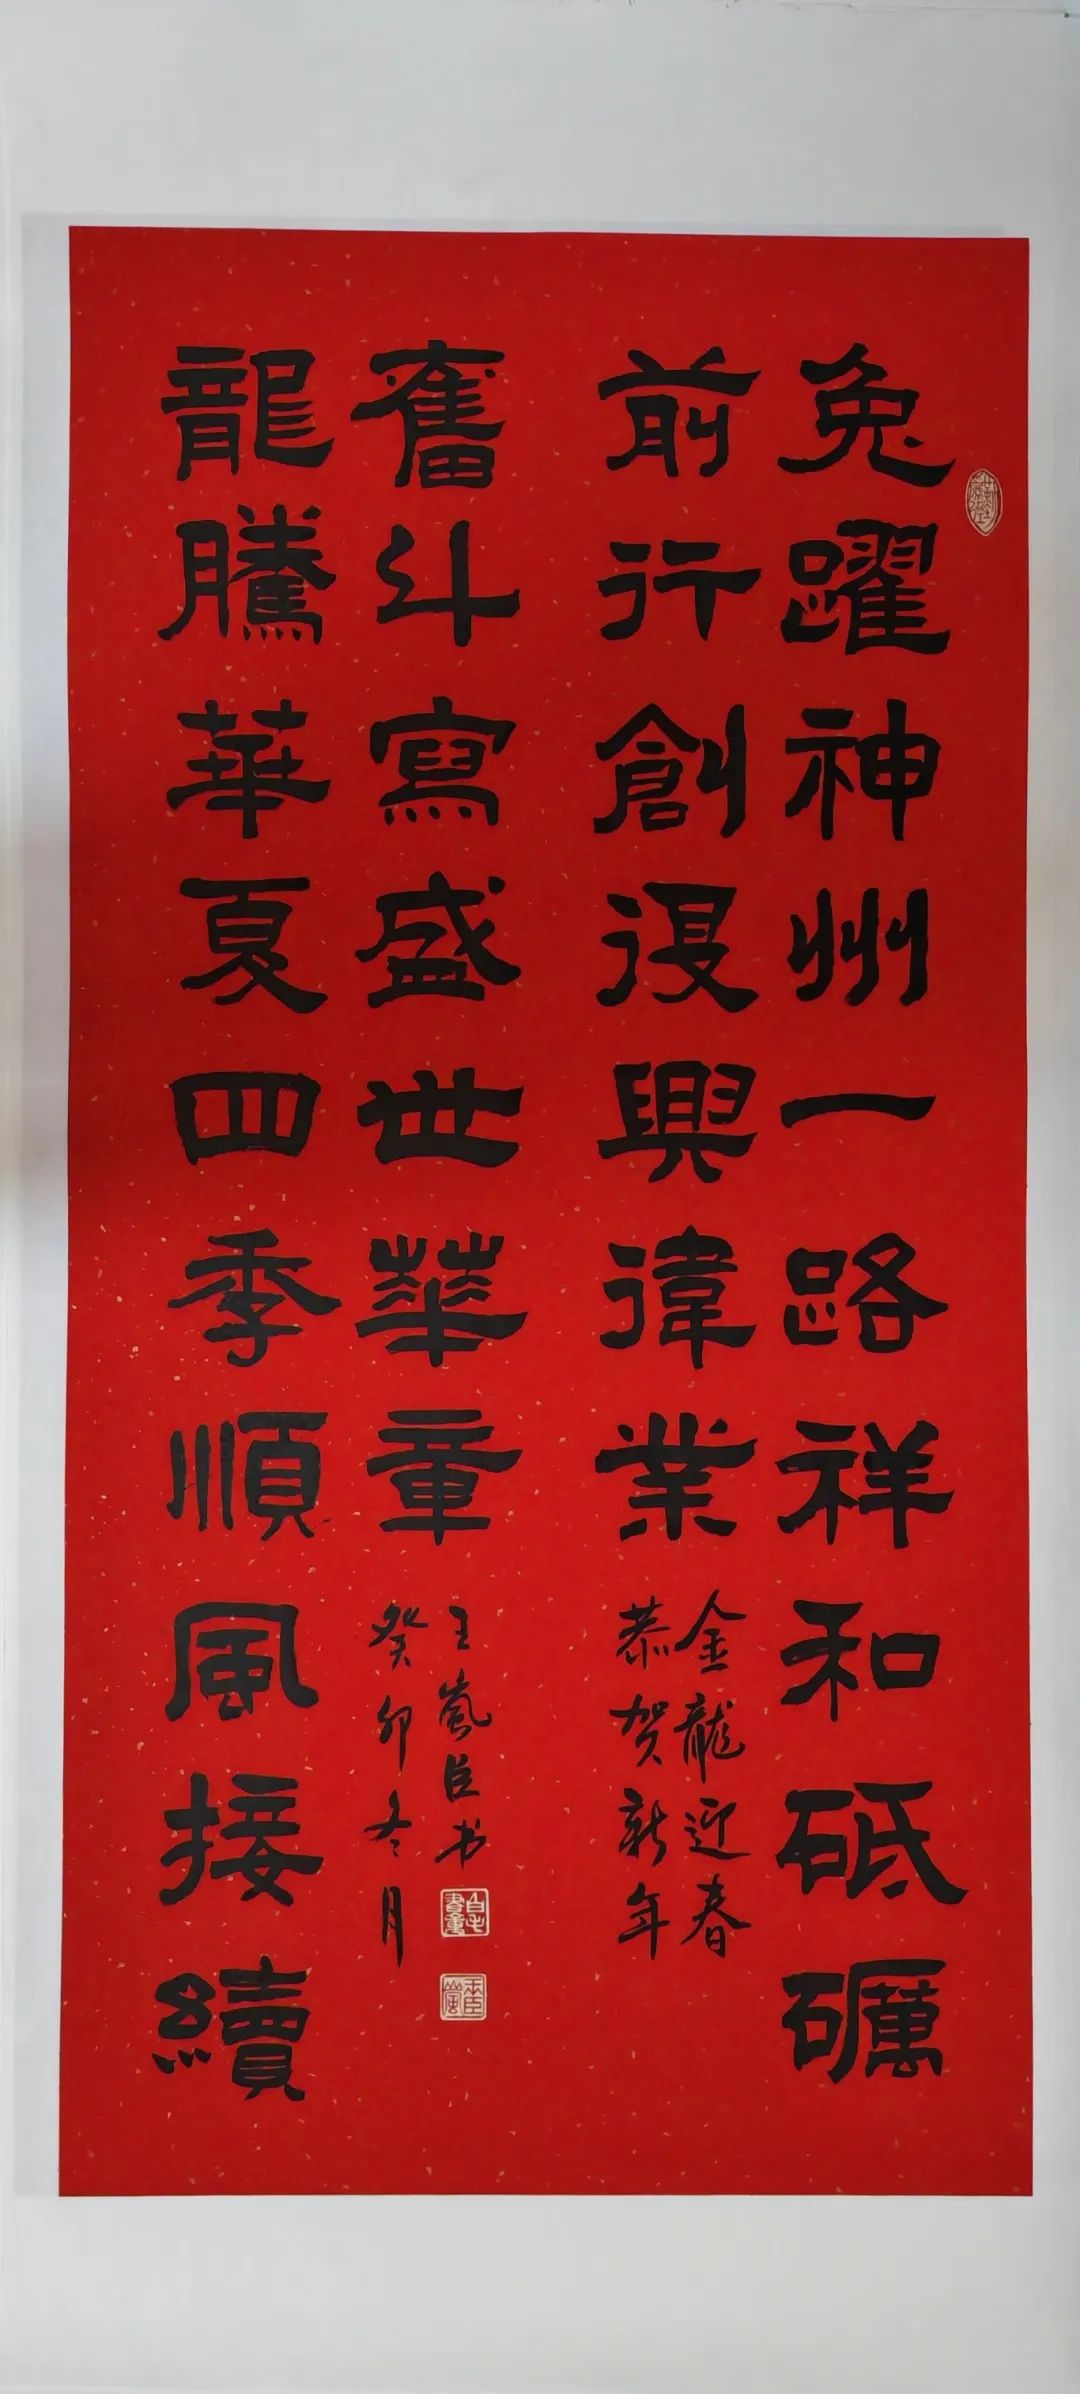 兔躍神州一路祥和砥礪
前行創復興偉業
金龍迎春
恭贺新年
龍騰華夏四季順風接續
奮斗寫盛世華章
癸卯冬月
王嵐臣书